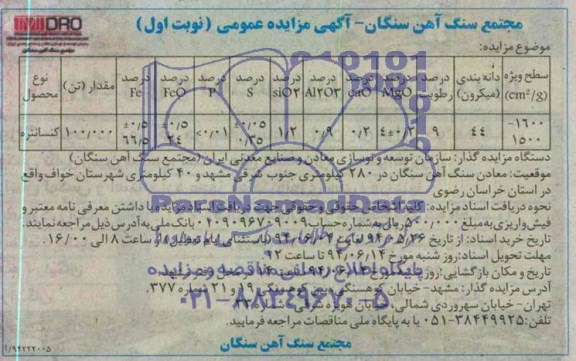 IMIDRO
مجتمع سنگ آهن سنگان
مجتمع سنگ آهن سنگان- آگهی مزایده عمومی (نوبت اول)
موضوع مزایده:
نوع محصول | مقدار (تن) | درصد Fe | درصد FeO | درصد P | درصد S | درصد siO2 | درصد Al2O3 | درصد caO | درصد MgO | درصد رطوبت | دانه بندی (میکرون) | سطح ویژه (cm²/g)
کنسانتره | ۱۰۰,۰۰۰ | ±۰/۵ ۶۶/۵ | ±۰/۵ ۲۴ | <۰/۰۱ | ±۰/۰۵ ۰/۳۵ | ۱/۲ | ۰/۹ | ۰/۲ | ۴±۰/۲ | ۹ | ۴۴ | ۱۶۰۰- ۱۵۰۰
دستگاه مزایده گذار: سازمان توسعه و نوسازی معادن و صنایع معدنی ایران (مجتمع سنگ آهن سنگان)
موقعیت: معادن سنگ آهن سنگان در ۲۸۰ کیلومتری جنوب شرقی مشهد و ۴۰ کیلومتری شهرستان خواف واقع
در استان خراسان رضوی
نحوه دریافت اسناد مزایده: کلیه اشخاص حقیقی و حقوقی جهت دریافت اسناد مزایده با داشتن معرفی نامه معتبر و
فیش واریزی به مبلغ ۵۰۰,۰۰۰ ریال به شماره حساب بانک ملی به آدرس ذیل مراجعه نمایند.
تاریخ خرید اسناد: از تاریخ ۹۴/۰۵/۲۶ لغایت ۹۴/۰۶/۰۲ (باستثنای ایام تعطیل) از ساعت ۸ الی ۱۶/۰۰
مهلت تحویل اسناد: روز شنبه مورخ ۹۴/۰۶/۱۴ تا ساعت
تاریخ و مکان بازگشایی: روز
پایگاه اطلاع رسانی مناقصه و مزایده
آدرس مزایده گذار: مشهد- خیابان کوهسنگی- بین کوهسنگی ۱۹ و ۲۱ شماره ۳۷۷
۰۲۱-۸۸۳۴۹۶۷۰-۵
تهران- خیابان سهروردی شمالی، خیابان هویزه شرقی، شماره
تلفن: ۳۸۴۴۹۹۲۵-۰۵۱ و یا به پایگاه ملی مناقصات مراجعه فرمایید.
مجتمع سنگ آهن سنگان